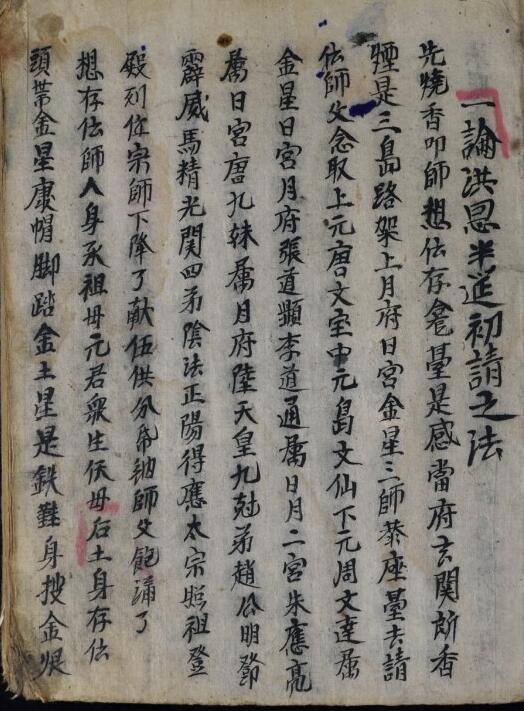 一論洪恩半筵初請之法
先燒香叩師想伝存龕臺是感當府玄関所香
煙是三島路架上月府日宮金星三師叅座臺去請
伝師父念取上元唐文宝中元葛文仙下元周文達属
金星日宮月府張道顯李道通属日月二宮朱應亮
属日宮唐九妹属月府陸天皇九尅弟趙公明鄧
霹威馬精光関四弟陰法正陽得應太宗照祖登
殿列位宗師下降了献伍供分帋紬師父飽涌了
想存伝師人身承祖母元君衆生仸母后土身存伝
頭帶金星康帽脚踏金土星是鉄難身搜金